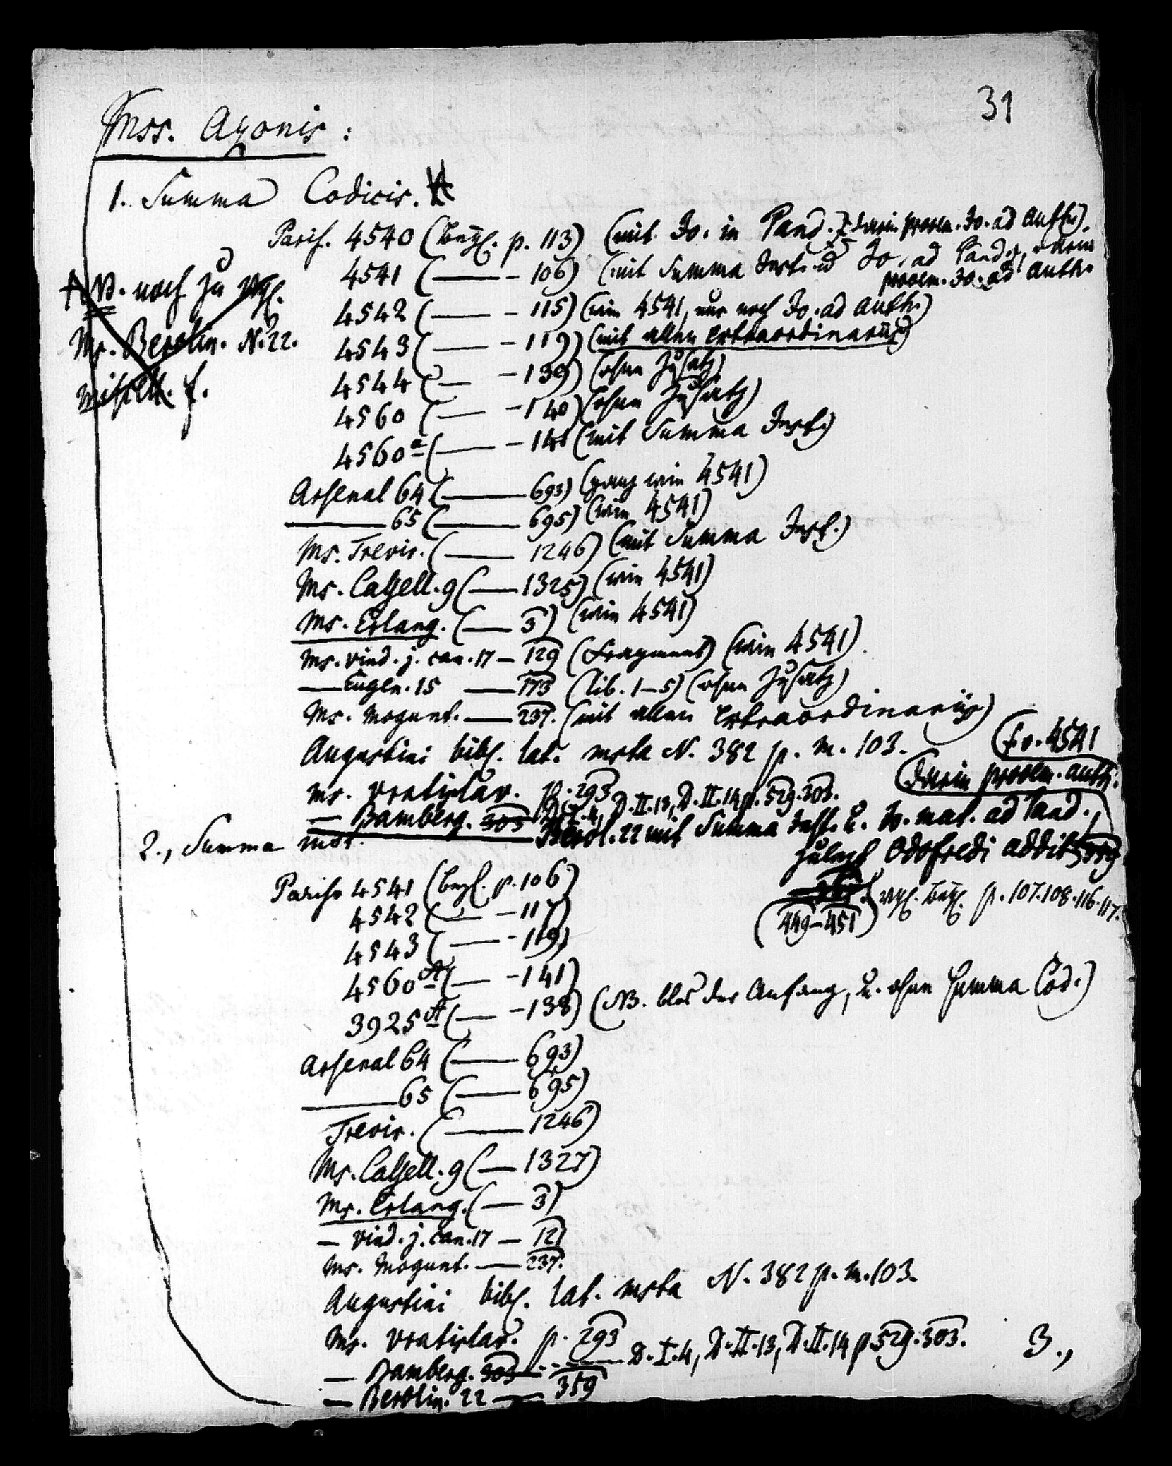 31
Mss. Azonis:
1. Summa Codicis.
Paris. 4540 (bezl. p. 113) (mit Jo. in Pand.; darin prooem. Jo. ad Auth.).
4541 (—— - 106) (mit Summa Inst. u. Jo. ad Pand., darin
prooem. Jo. ad Auth.
4542 (—— - 115) (wie 4541, nur noch Jo. ad Auth.)
4543 (—— - 119) (mit allen Extraordinariis)
4544 (—— - 139) (ohne Zusatz)
4560 (—— - 140) (ohne Zusatz)
4560a (—— - 141 (mit Summa Inst.)
NB. noch zu vgl.
Ms. Berolin. N. 22.
Arsenal 64 (—— 693) (ganz wie 4541)
—— 65 (—— 695) (wie 4541)
Ms. Trevir. (—— 1246) (mit Summa Inst.)
Ms. Cassell. 9 (—— 1325) (wie 4541)
Ms. Erlang. (—— 3) (wie 4541)
Ms. vind. j. can. 17 — 129 (Fragment) (wie 4541).
—— Eugen. 15 —— 173 (lib. 1–5) (ohne Zusatz)
Ms. Mogunt. —— 237. (mit allen Extraordinariis)
Augustini bibl. lat. msta N. 382 p. m. 103.
(Jo. 4541
(darin prooem. auth.
Ms. Vratislav. p. 293
— Bamberg. 303 D. I. 4, D. II. 13, D. II. 14 p. 529. 303.
Berol. 22 mit Summa Inst. u. Jo. nat. ad Pand.,
zuletzt Odofredi addit 359
(449–451) vgl. bezl. p. 107. 108. 116. 117.
2., Summa inst.
Paris. 4541 (bezl. p. 106)
4542 (—— - 117)
4543 (—— - 119)
4560A (—— - 141)
3925A (—— - 138) (NB. blos der Anfang, u. ohne Summa Cod.)
Arsenal 64 (—— 693)
—— 65 (—— 695)
Trevir. (—— 1246)
Ms. Cassell. 9 (— 1327)
Ms. Erlang. (— 3)
— vind. j. can. 17 — 121
Ms. Mogunt. —— 237.
Augustini bibl. lat. msta N. 382 p. m. 103.
Ms. Vratislav. p. 293
— Bamberg. 303 —— D. I. 4, D. II. 13, D. II. 14 p 529. 303.
— Berolin. 22 — 359
3.,